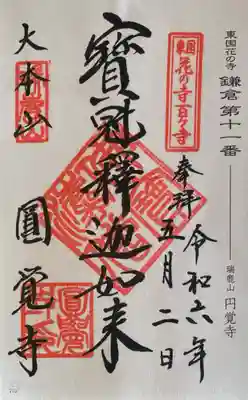 東国花の寺 鎌倉第十一番 ―― 瑞鹿山 円覚寺
東国花の寺百ヶ寺
奉拝 令和六年
五月二日
寶冠釋迦如来
大本山
圓覚寺